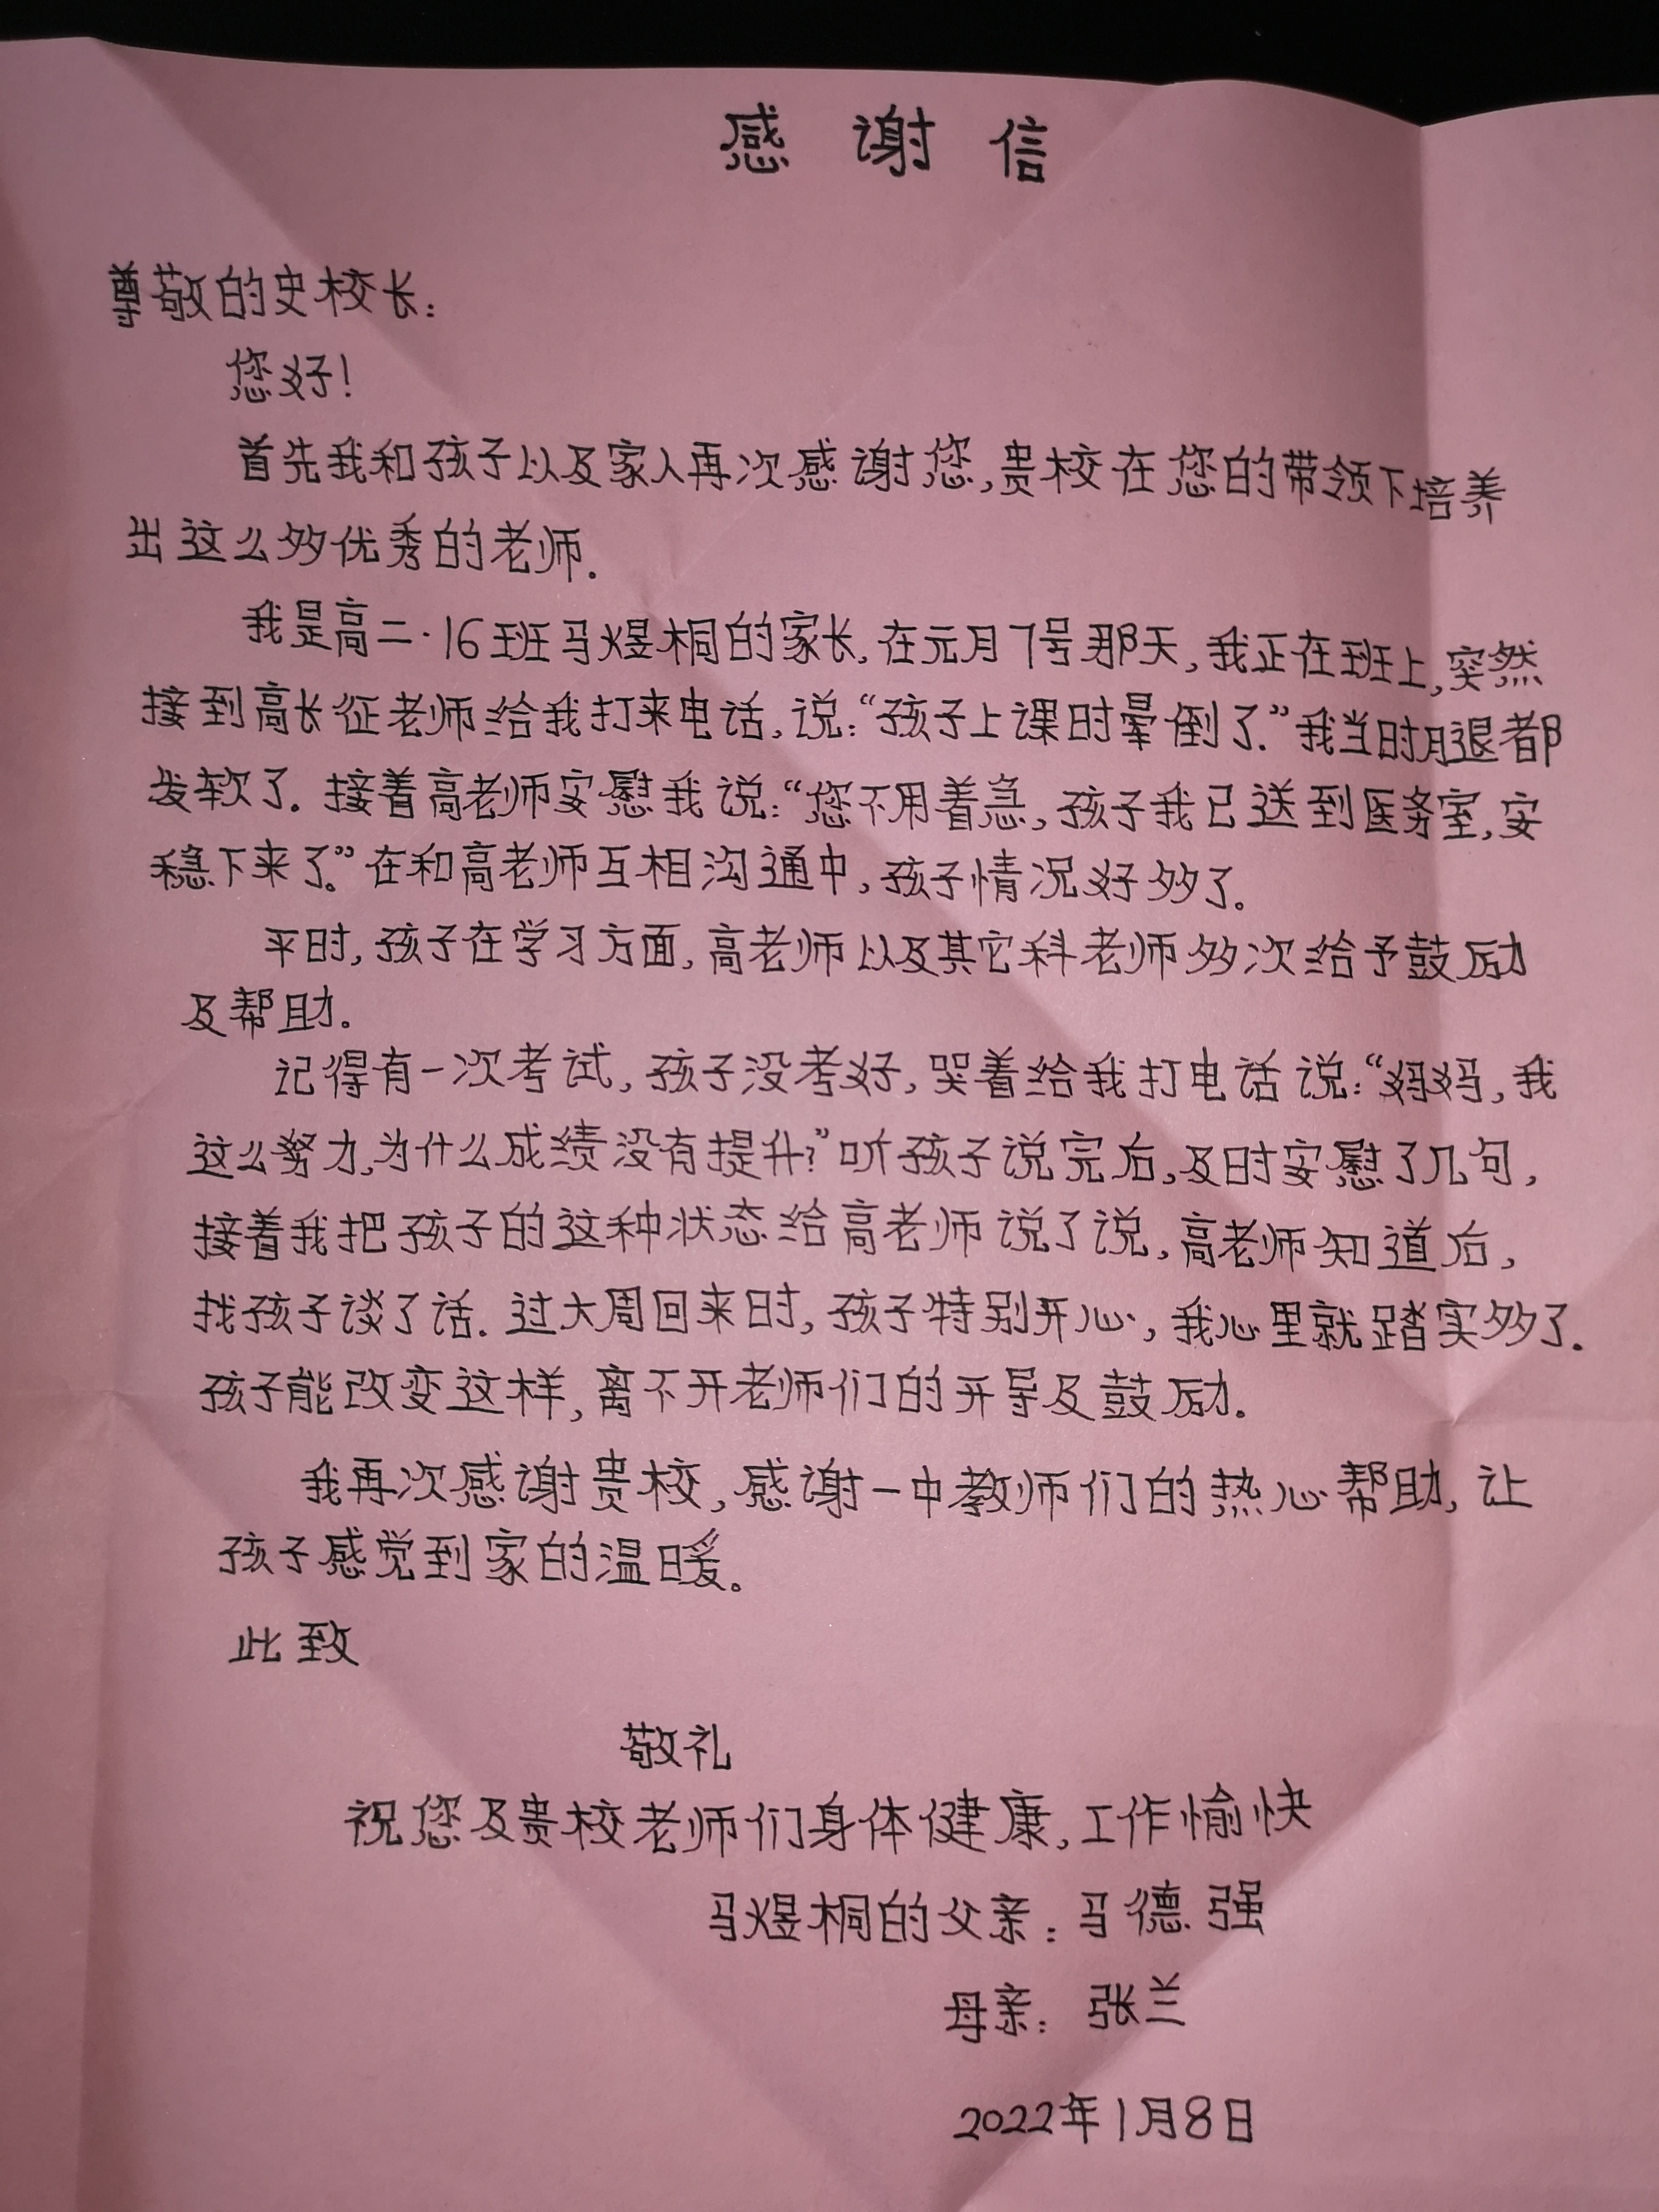 感谢信
尊敬的史校长：
您好！
首先我和孩子以及家人再次感谢您，贵校在您的带领下培养
出这么多优秀的老师.
我是高二·16班马煜桐的家长，在元月7号那天，我正在班上，突然
接到高长征老师给我打来电话，说：“孩子上课时晕倒了.”我当时腿都
发软了.接着高老师安慰我说：“您不用着急，孩子我已送到医务室，安
稳下来了。”在和高老师互相沟通中，孩子情况好多了。
平时，孩子在学习方面，高老师以及其它科老师多次给予鼓励
及帮助。
记得有一次考试，孩子没考好，哭着给我打电话说：“妈妈，我
这么努力，为什么成绩没有提升？”听孩子说完后，及时安慰了几句，
接着我把孩子的这种状态给高老师说了说，高老师知道后，
找孩子谈了话.过大周回来时，孩子特别开心，我心里就踏实多了.
孩子能改变这样，离不开老师们的开导及鼓励。
我再次感谢贵校，感谢一中教师们的热心帮助，让
孩子感觉到家的温暖。
此致
敬礼
祝您及贵校老师们身体健康，工作愉快
马煜桐的父亲：马德强
母亲：张兰
2022年1月8日